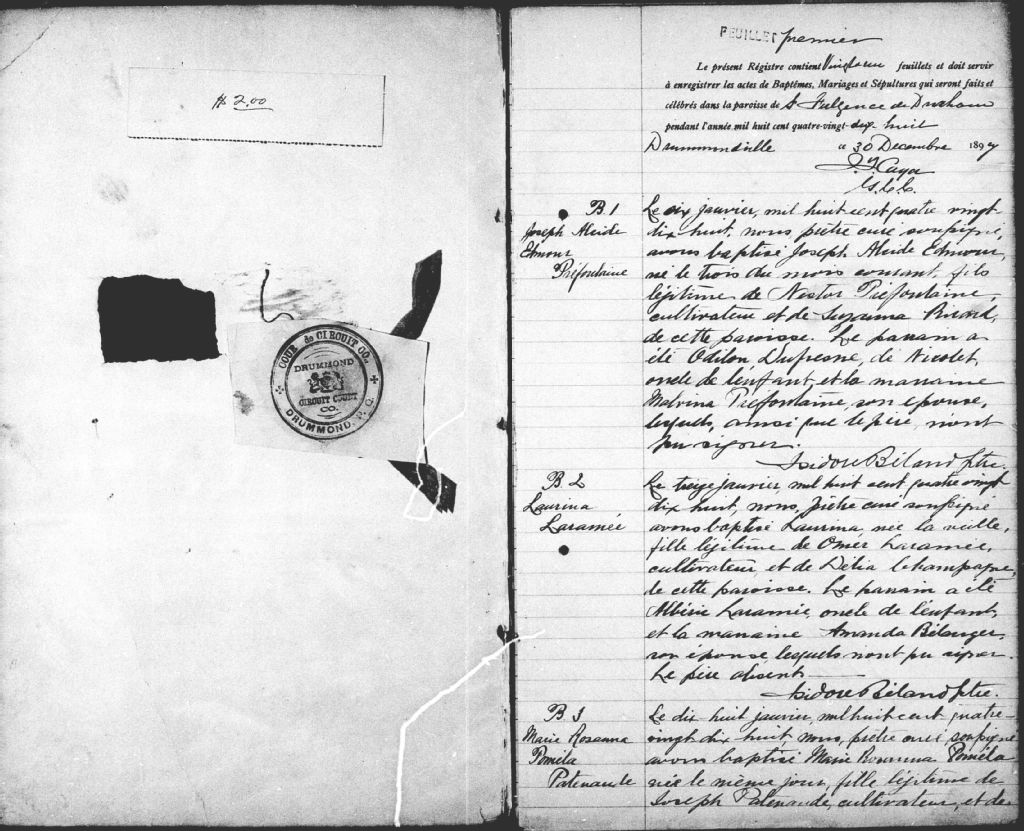 $ 2.00
COUR de CIRCUIT CO.
DRUMMOND
CIRCUIT COURT
CO.
DRUMMOND. P. Q.
FEUILLET premier
Le présent Régistre contient feuillets et doit servir
à enregistrer les actes de Baptêmes, Mariages et Sépultures qui seront faits et
célébrés dans la paroisse de St Fulgence de Durham
pendant l'année mil huit cent quatre-vingt-dix-huit
Drummondville ce 30 Decembre 1897
Caya
G. C. C.
B. 1
Joseph Alcide
Edmour
Préfontaine
Le six janvier, mil huit cent quatre vingt
dix huit, nous, prêtre curé soussigné,
avons baptisé Joseph Alcide Edmour,
né le trois du mois courant, fils
légitime de Nestor Préfontaine,
cultivateur et de Suzanna Ricard,
de cette paroisse. Le parrain a
été Odilon Dufresne, de Nicolet,
oncle de l'enfant, et la marraine
Malvina Préfontaine, son épouse,
lesquels, ainsi que le père, n'ont
pu signer.
Isidore Béland Ptre.
B 2
Laurina
Laramée
Le treize janvier, mil huit cent quatre vingt
dix huit, nous, prêtre curé soussigné
avons baptisé Laurina, née la veille,
fille légitime de Omer Laramée,
cultivateur, et de Délia Lechampagne,
de cette paroisse. Le parrain a été
Albéric Laramée, oncle de l'enfant,
et la marraine Amanda Bélanger,
son épouse, lesquels n'ont pu signer.
Le père absent.
Isidore Béland Ptre.
B 3
Marie Rosanna
Poméla
Patenaude
Le dix huit janvier, mil huit cent quatre-
vingt dix huit nous, prêtre curé soussigné
avons baptisé Marie Rosanna Poméla
née le même jour, fille légitime de
Joseph Patenaude, cultivateur, et de